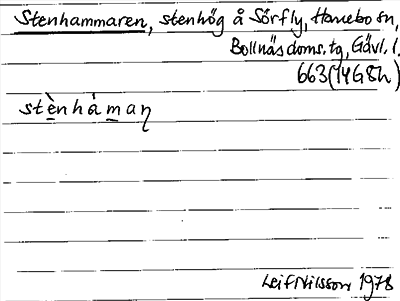 Stenhammaren, stenhög å Sörfly, Hanebo sn,
Bollnäs doms. tg, Gävl. l.
663 (14G8h)
stènhámaɳ
Leif Nilsson 1978